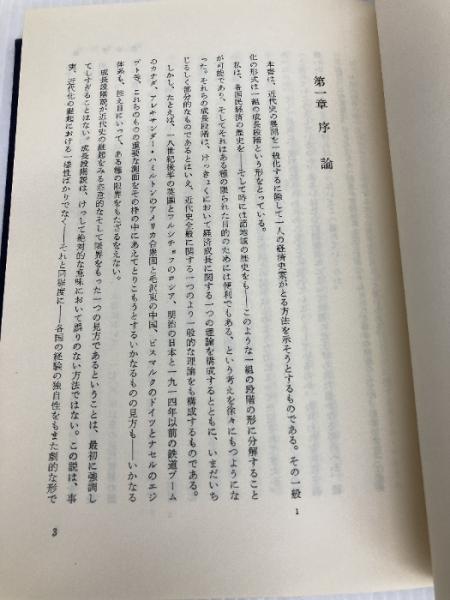 第一章 序論
本書は、近代史の展開を一般化するに際して一人の経済史家がとる方法を示そうとするものである。その一般
化の形式は一組の成長段階という形をとっている。
私は、各国民経済の歴史を――そして時には諸地域の歴史をも――このような一組の段階の形に分解すること
が可能であり、そしてそれはある種の限られた目的のためには便利でもある、という考えを徐々にもつようにな
った。それらの成長段階は、けっきょくにおいて経済成長に関する一つの理論を構成するとともに、いまだいち
じるしく部分的なものであるとはいえ、近代史全般に関する一つのより一般的な理論をも構成するものである。
しかし、たとえば、一八世紀後半の英国とフルシチョフのロシア、明治の日本と一九一四年以前の鉄道ブーム
のカナダ、アレキサンダー・ハミルトンのアメリカ合衆国と毛沢東の中国、ビスマルクのドイツとナセルのエジ
プト等、これらのものの重要な側面をその枠の中にあえてとりこもうとするいかなるものの見方も――いかなる
体系も、控え目にいって、ある種の限界をもたざるをえない。
成長段階説が近代史の継起をみる恣意的なそして限界をもった一つの見方であるということは、最初に強調し
てしすぎることはない。成長段階説は、けっして絶対的な意味において誤りのない方法ではない。この説は、事
実、近代化の継起における一様性ばかりでなく――それと同程度に――各国の経験の独自性をもまた劇的な形で
1
3